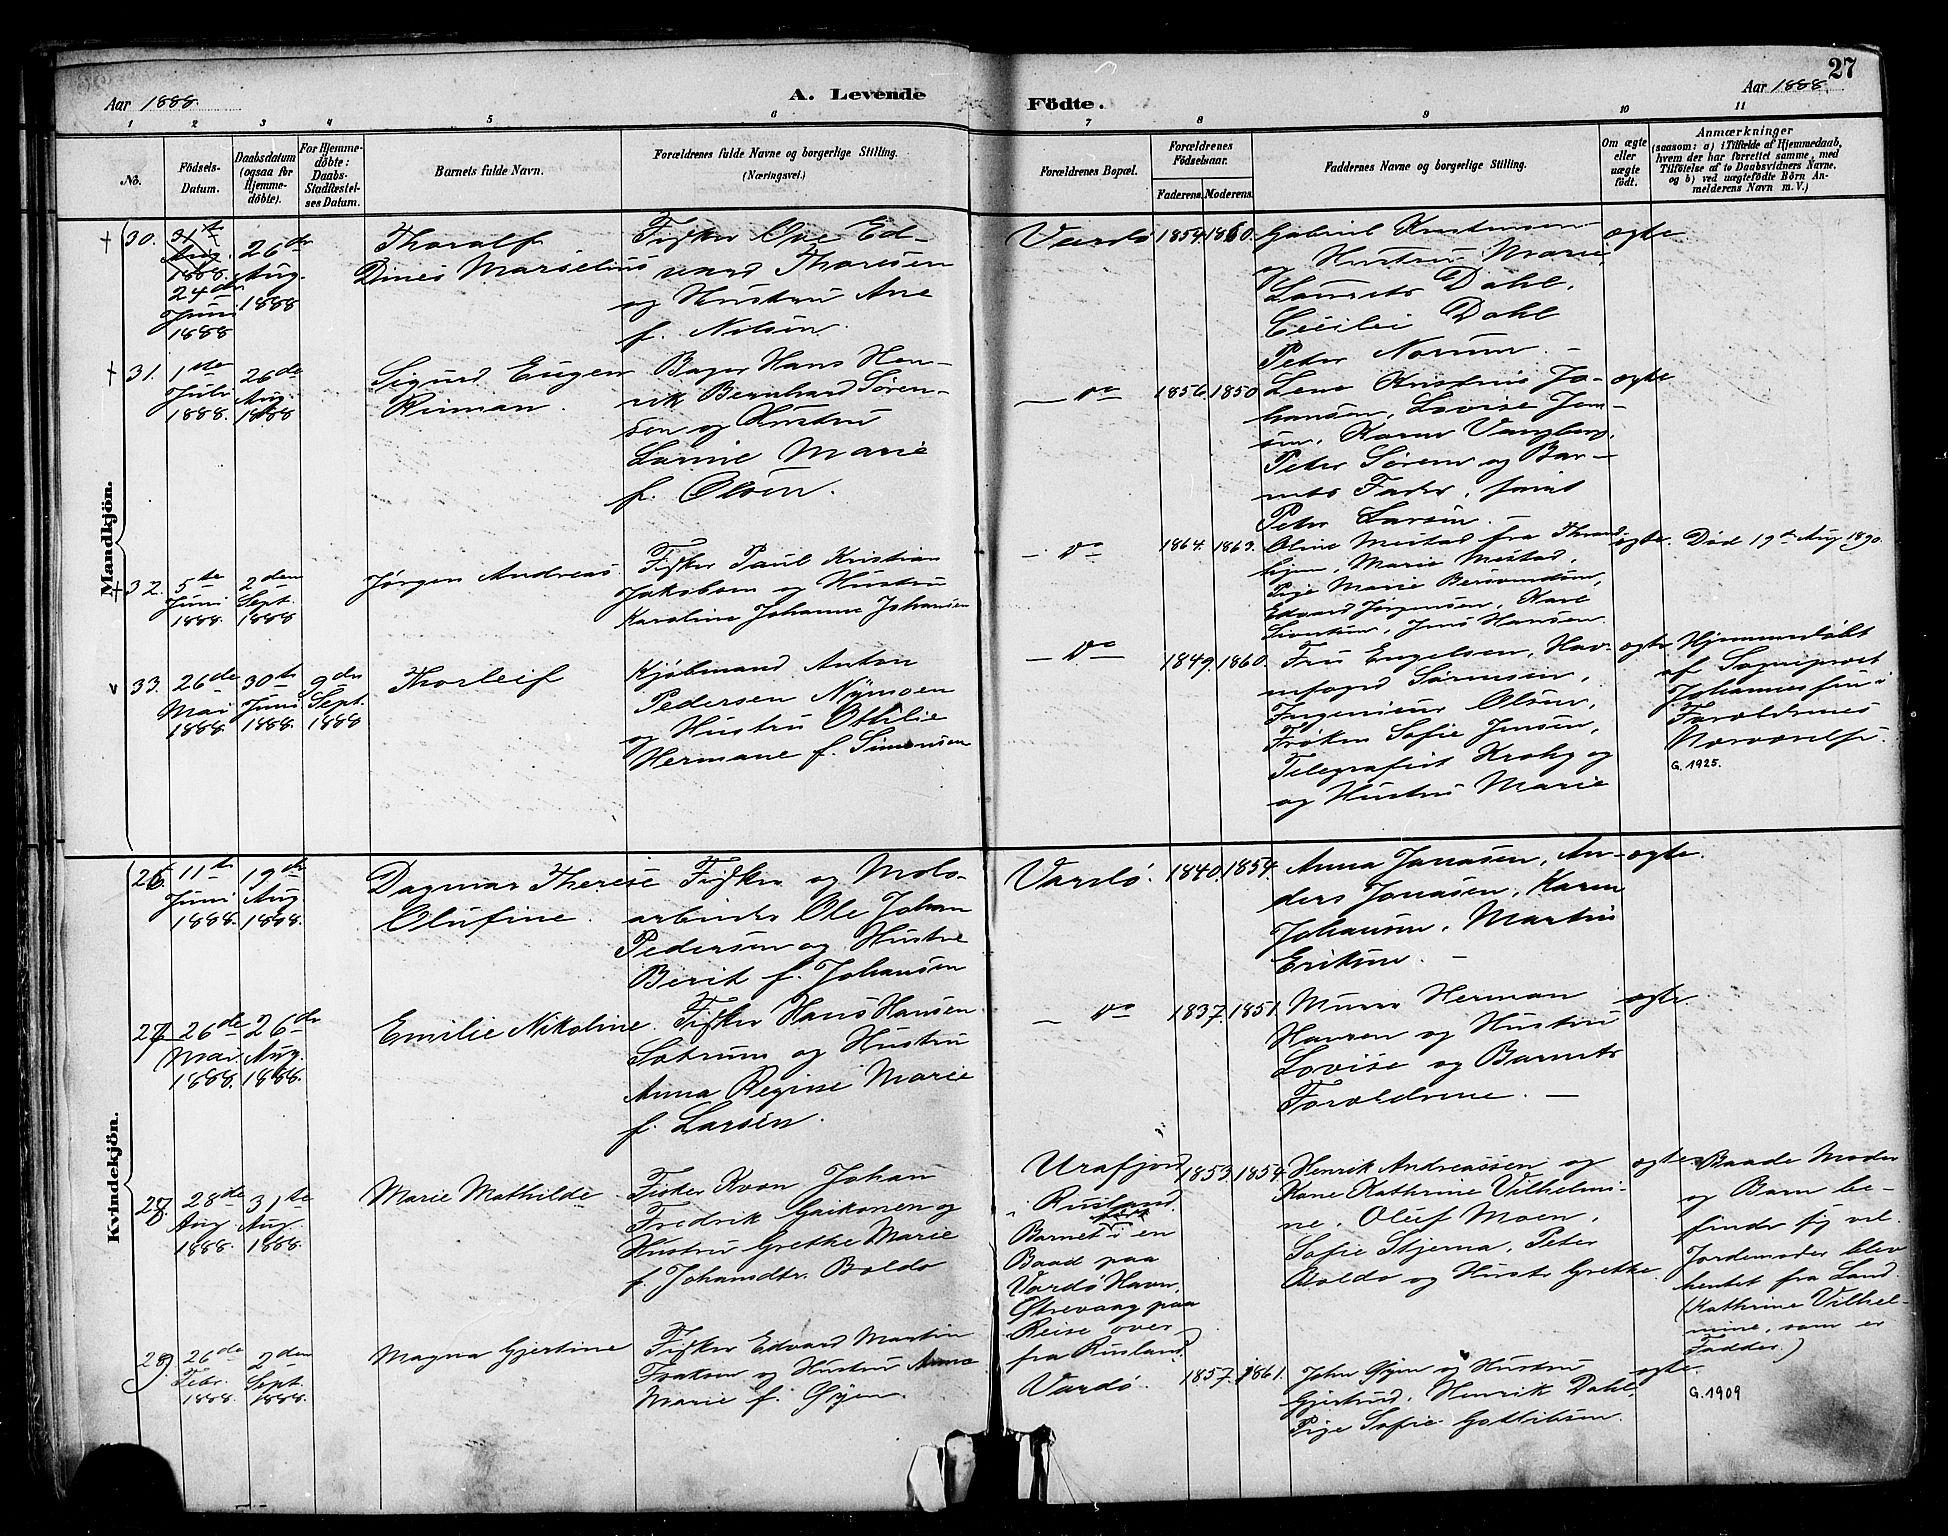 27
Aar 1888.
A. Levende
Födte.
Aar 1888.
1 2 3 4 5 6 7 8 9 10 11
No.
Födsels-
Datum.
Daabsdatum
(ogsaa for
Hjemme-
døbte).
For Hjemme-
døbte:
Daabs-
Stadfæstel-
ses Datum.
Barnets fulde Navn.
Forældrenes fulde Navne og borgerlige Stilling.
(Næringsvei.)
Forældrenes Bopæl.
Forældrenes
Födselsaar.
Faderens. Moderens.
Faddernes Navne og borgerlige Stilling.
Om ægte
eller
uægte
födt.
Anmærkninger
(saasom: a) i Tilfælde af Hjemmedaab,
hvem der har forrettet samme, med
Tilföielse af to Daabsvidners Navne,
og b) ved uægtefödte Börn An-
melderens Navn m. V.)
Mandkjön.
30.
31te
Aug.
1888.
24de
Juni
1888
26de
Aug.
1888
Thoralf
Dines Marselius
Fisker Ove Ed-
vard Thoresen
og Hustru Ane
f. Nilsen.
Vardö
1854. 1860.
Gabriel Kristensen
og Hustru Marie,
Laurits Dahl,
Cecilie Dahl
Peter Norum. –
ægte
31.
1ste
Juli
1888.
26de
Aug.
1888
Sigurd Eugen
Rinman.
Bager Hans Hen-
rik Bernhard Søren-
sen og Hustru
Larine Marie
f. Olsen.
– do –
1856. 1850
Lene Kristine Jo-
hansen, Lovise Jen-
sen, Karen Vangberg,
Peter Sørens og Bar-
nets Fader, samt
Peter Larsen. –
ægte
32.
5te
Juni
1888.
2den
Sept.
1888
Jørgen Andreas
Fisker Paul Kristian
Jakobsen og Hustru
Karoline Johanne Johansen
– do –
1864. 1863.
Oline Mestad fra Thrond
hjem, Marie Mestad,
Pige Marie Bersvendsen,
Edvard Jørgensen, Karl
Sivertsen, Jens Hansen
ægte.
Død 19de Aug 1890.
33.
26de
Mai
1888.
30te
Juni
1888.
9de
Sept.
1888
Thorleif
Kjøbmand Anton
Pedersen Nymoen
og Hustru Ottilie
Hermane f. Simonsen
– do –
1849. 1860.
Fru Engelsen, Hav-
nefoged Sørensen,
Ingeniør Olsen,
Frøken Sofie Jensen,
Telegrafist Krohg og
og Hustru Marie
ægte
Hjemmedøbt
af Sogneprest
Johannessen i
Forældrenes
Nærværelse.
G. 1925.
Kvindekjön.
26.
11te
Juni
1888.
19de
Aug.
1888.
Dagmar Therese
Olufine.
Fisker og Molo-
arbeider Ole Johan
Pedersen og Hustru
Berit f. Johansen
Vardö.
1840. 1854.
Anna Jonasen, An-
ders Jonasen, Karen
Johansen, Martin
Eriksen. –
ægte.
27.
26de
Mar.
1888.
26de
Aug.
1888.
Emilie Nikoline.
Fisker Hans Hansen
Sætrum og Hustru
Anna Regine Marie
f. Larsen.
– do –
1837. 1851.
Murer Herman
Hansen og Hustru
Lovise og Barnets
Forældrene. –
ægte
28.
28de
Aug
1888.
31te
Aug.
1888.
Marie Mathilde
Fisker Kvæn Johan
Fredrik Gaikonen og
Hustru Grethe Marie
f. Johansdtr. Boldo
Urafjord
i Rusland.
Barnet født i en
Baad paa
Vardø Havn,
Østrevaag paa
Reise over
fra Rusland.
1853. 1854.
Henrik Andreassen og
Kone Kathrine Vilhelmi-
ne, Oluf Moen,
Sofie Stjerna, Peter
Boldo og Hustr. Grethe
ægte.
Baade Moder
og Barn be-
finder sig vel.
Jordemoder blev
hentet fra Land.
(Kathrine Vilhel-
mine, som er
Fadder.)
29.
26de
Febr.
1888.
2den
Sept.
1888.
Magna Gjertine
Fisker Edvard Martin
Iraksen og Hustru Anna
Marie f. Gjen.
Vardö.
1857. 1861.
John Gjen og Hustru
Gjertrud, Henrik Dahl,
Pige Sofie Gottlibsen.
ægte.
G. 1909